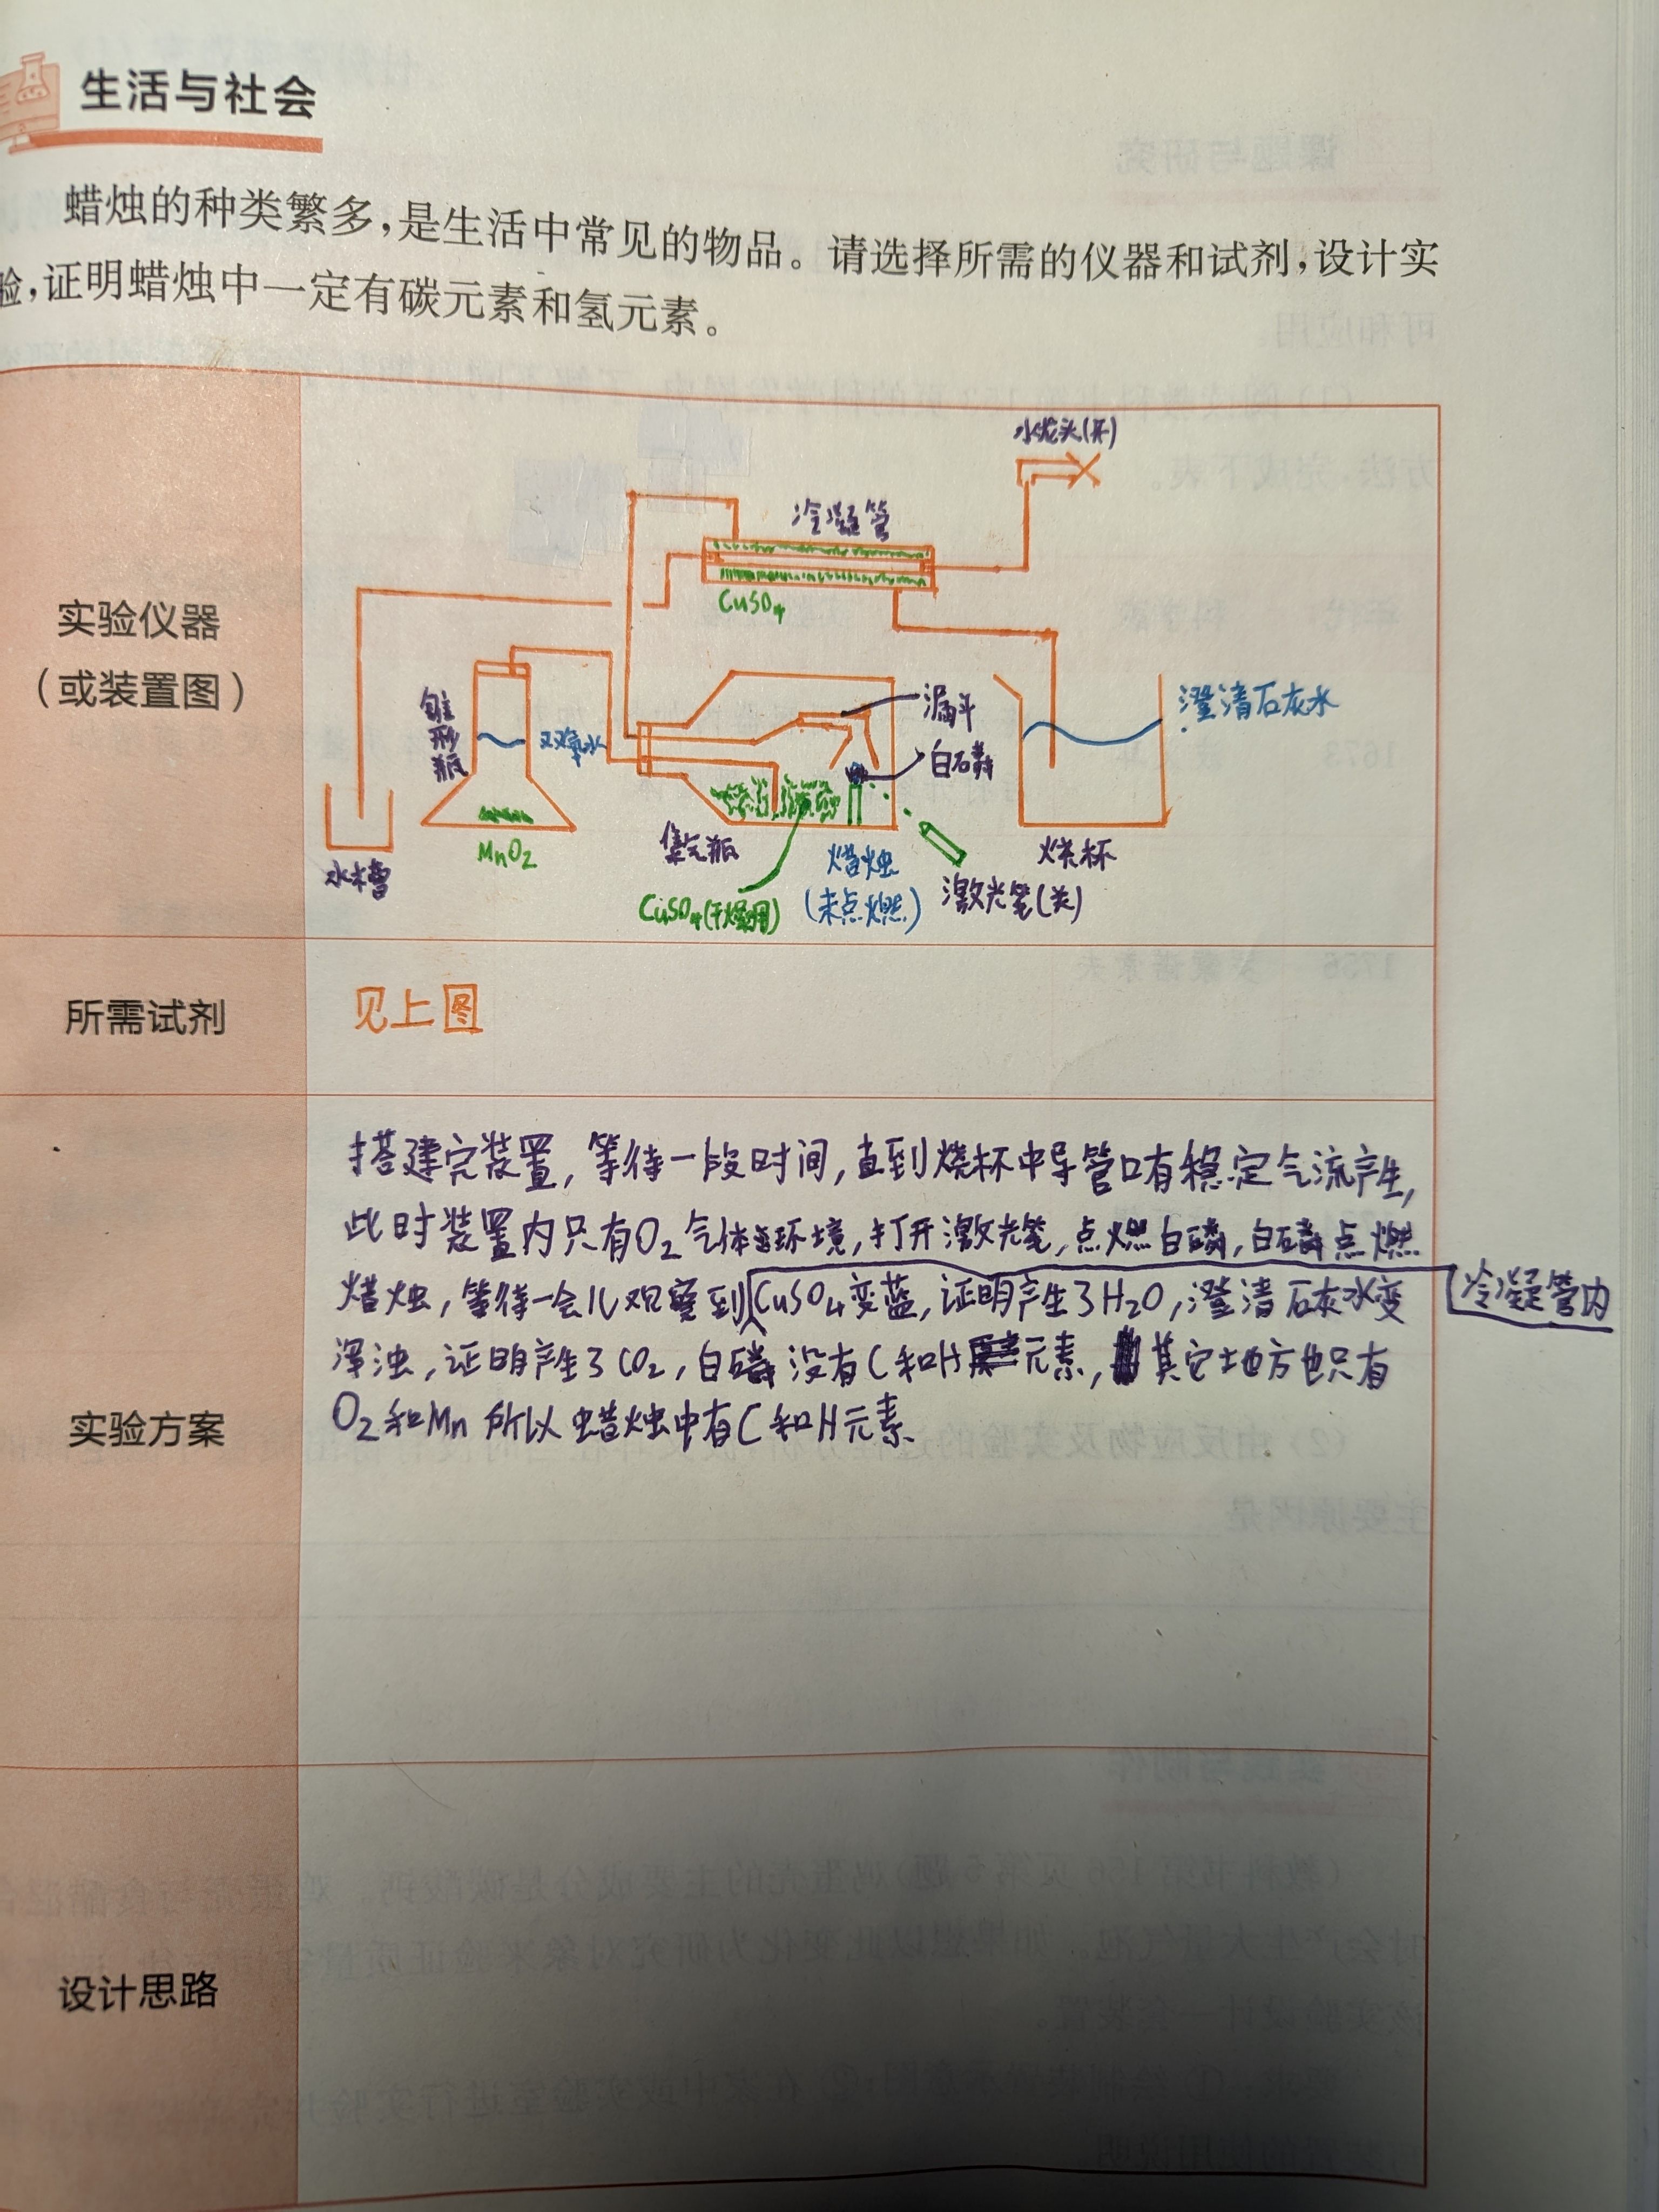 生活与社会
蜡烛的种类繁多,是生活中常见的物品。请选择所需的仪器和试剂,设计实
验,证明蜡烛中一定有碳元素和氢元素。
实验仪器
(或装置图)
水龙头(开)
冷凝管
CuSO₄
锥形瓶
双氧水
漏斗
白磷
澄清石灰水
MnO₂
水槽
集气瓶
蜡烛
(未点燃)
CuSO₄(干燥用)
激光笔(关)
烧杯
所需试剂
见上图
实验方案
搭建完装置,等待一段时间,直到烧杯中导管口有稳定气流产生,
此时装置内只有O₂气体环境,打开激光笔,点燃白磷,白磷点燃
蜡烛,等待一会儿观察到CuSO₄变蓝,证明产生了H₂O,澄清石灰水变
冷凝管内
浑浊,证明产生了CO₂,白磷没有C和H元素,其它地方也只有
O₂和Mn所以蜡烛中有C和H元素
设计思路